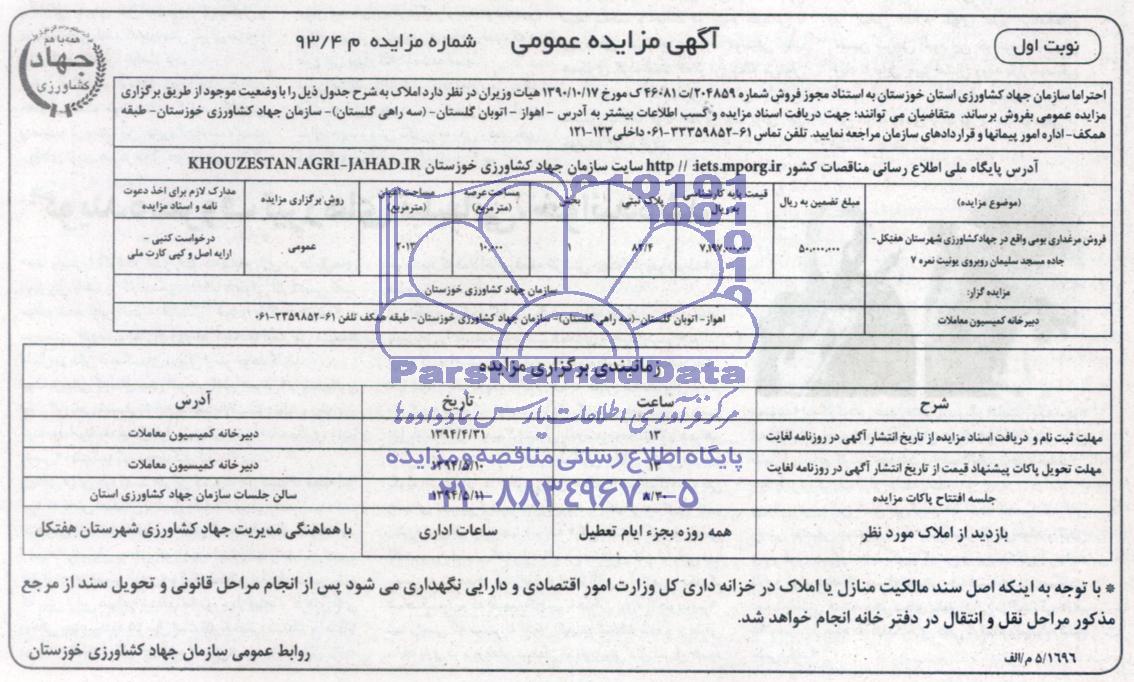 نوبت اول
آگهی مزایده عمومی
شماره مزایده م ۹۳/۳
جهاد
کشاورزی
احتراما سازمان جهاد کشاورزی استان خوزستان به استناد مجوز فروش شماره ۲۰۴۸۵۹/ت ۴۶۰۸۱ ک مورخ ۱۳۹۰/۱۰/۱۷ هیات وزیران در نظر دارد املاک به شرح جدول ذیل را با وضعیت موجود از طریق برگزاری
مزایده عمومی بفروش برساند. متقاضیان می توانند جهت دریافت اسناد مزایده و کسب اطلاعات بیشتر به آدرس - اهواز - اتوبان گلستان- (سه راهی گلستان)- سازمان جهاد کشاورزی خوزستان- طبقه
همکف- اداره امور پیمانها و قراردادهای سازمان مراجعه نمایند. تلفن تماس ۶۱-۳۳۳۵۹۸۵۲-۰۶۱ داخلی ۱۲۳-۱۲۱
آدرس پایگاه ملی اطلاع رسانی مناقصات کشور http // :iets.mporg.ir سایت سازمان جهاد کشاورزی خوزستان KHOUZESTAN.AGRI-JAHAD.IR
(موضوع مزایده) مبلغ تضمین به ریال قیمت پایه کارشناسی به ریال پلاک ثبتی مساحت عرصه (مترمربع) مساحت اعیان (مترمربع) روش برگزاری مزایده مدارک لازم برای اخذ دعوت نامه و اسناد مزایده
فروش مرغداری بومی واقع در جهاد کشاورزی شهرستان هفتکل- ۵۰۰.۰۰۰.۰۰۰ ۸۴/۴ ۱ ۱۰.۰۰۰ ۲۰۱۳ عمومی درخواست کتبی -
جاده مسجد سلیمان روبروی یونیت نمره ۷ ارایه اصل و کپی کارت ملی
مزایده گزار: سازمان جهاد کشاورزی خوزستان
دبیرخانه کمیسیون معاملات اهواز- اتوبان گلستان- (سه راهی گلستان)- سازمان جهاد کشاورزی خوزستان- طبقه همکف تلفن ۶۱-۳۳۳۵۹۸۵۲-۰۶۱
زمانبندی برگزاری مزایده
ParsNamadData
شرح ساعت تاریخ آدرس
مرکز فرآوری اطلاعات پارس نماد داده ها
مهلت ثبت نام و دریافت اسناد مزایده از تاریخ انتشار آگهی در روزنامه لغایت ۱۳ ۱۳۹۴/۴/۳۱ دبیرخانه کمیسیون معاملات
پایگاه اطلاع رسانی مناقصه و مزایده
مهلت تحویل پاکات پیشنهاد قیمت از تاریخ انتشار آگهی در روزنامه لغایت ۱۳ ۱۳۹۴/۵/۱۰ دبیرخانه کمیسیون معاملات
۰۲۱-۸۸۳۴۹۶۷۰-۵
جلسه افتتاح پاکات مزایده ۱۳۹۴/۵/۱۱ سالن جلسات سازمان جهاد کشاورزی استان
بازدید از املاک مورد نظر همه روزه بجزء ایام تعطیل ساعات اداری با هماهنگی مدیریت جهاد کشاورزی شهرستان هفتکل
* با توجه به اینکه اصل سند مالکیت منازل یا املاک در خزانه داری کل وزارت امور اقتصادی و دارایی نگهداری می شود پس از انجام مراحل قانونی و تحویل سند از مرجع
مذکور مراحل نقل و انتقال در دفتر خانه انجام خواهد شد.
۵/۱۶۹۶ م/الف
روابط عمومی سازمان جهاد کشاورزی خوزستان